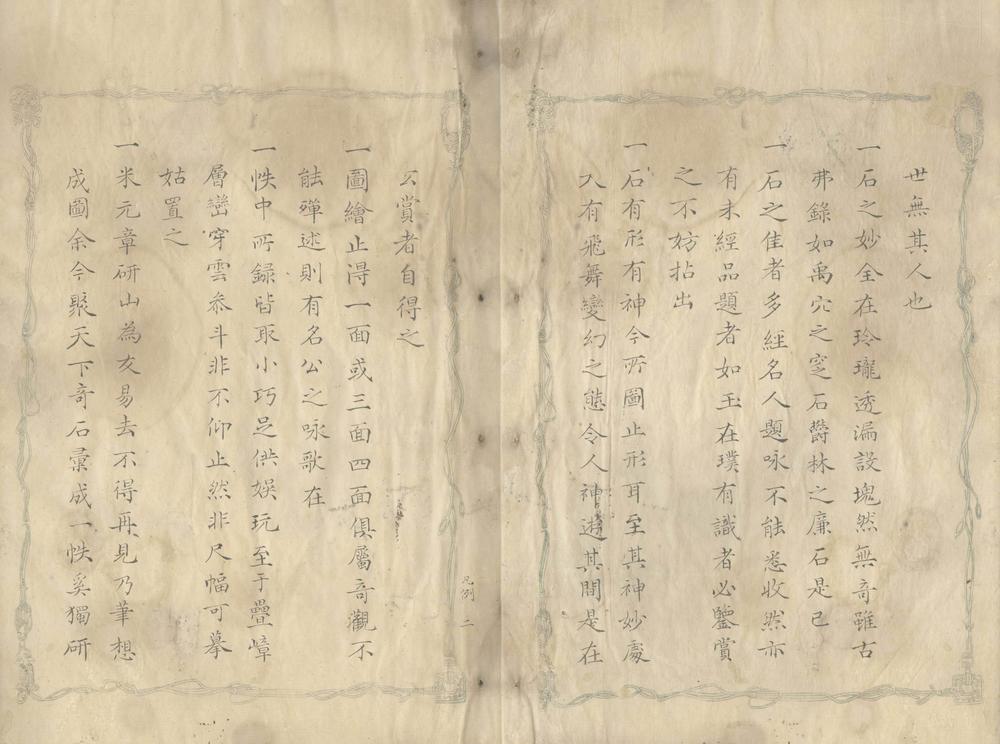 世無其人也
一石之妙全在玲瓏透漏設塊然無奇雖古
弗錄如禹穴之窆石欝林之廉石是已
一石之佳者多經名人題咏不能悉收然亦
有未經品題者如玉在璞有識者必鑒賞
之不妨拈出
一石有形有神今所圖止形耳至其神妙處
大有飛舞變幻之態令人神逰其間是在
公賞者自得之
一圖繪止得一面或三面四面俱屬奇觀不
能殫述則有名公之咏歌在
一帙中所録皆取小巧足供娛玩至于疊嶂
層巒穿雲叅斗非不仰止然非尺幅可摹
姑置之
一米元章研山為友易去不得再見乃筆想
成圖余今聚天下奇石彚成一帙奚獨研
凡例 二